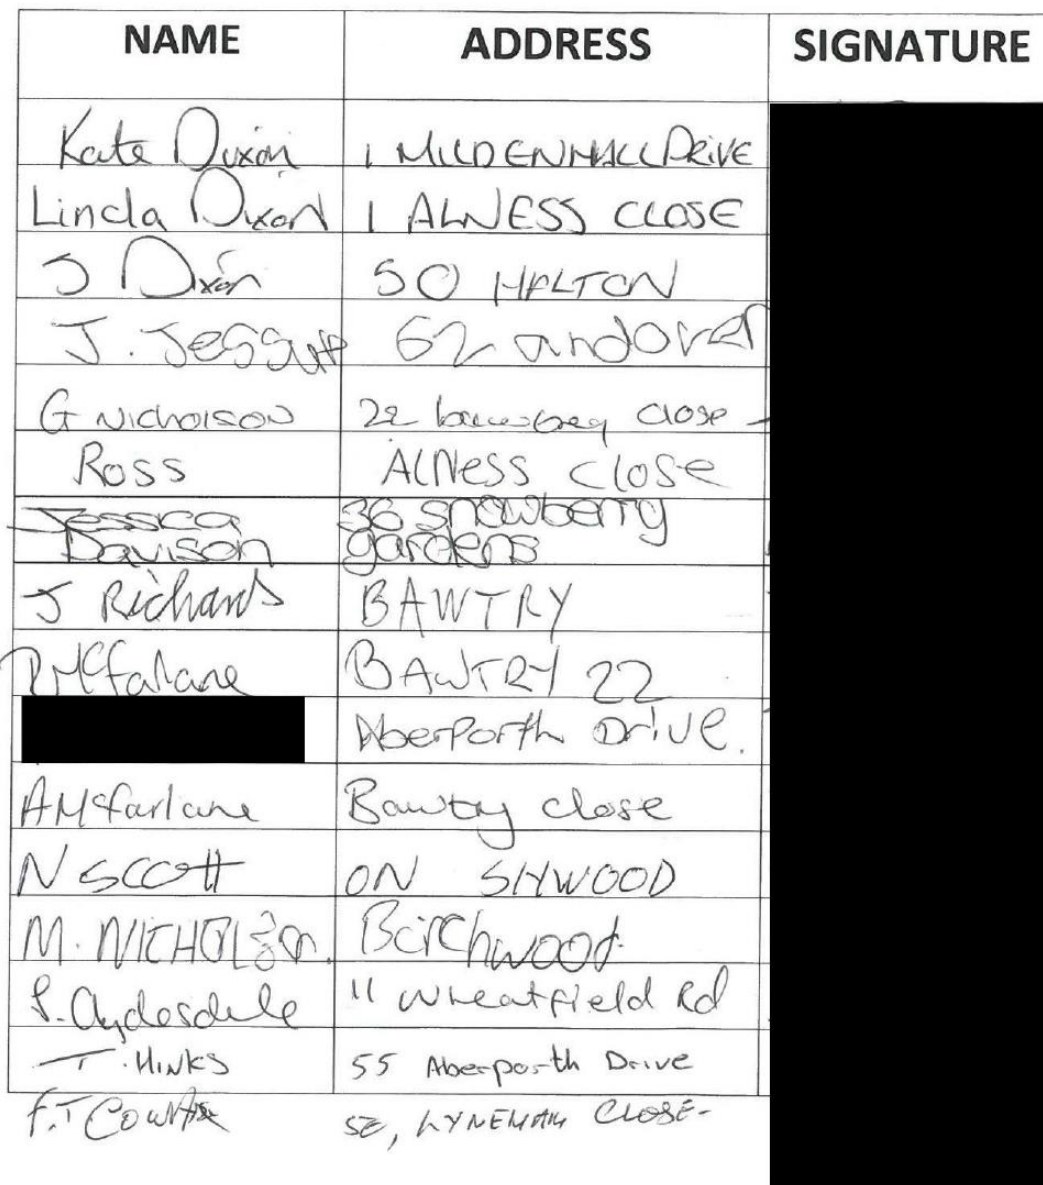 NAME ADDRESS SIGNATURE
Kate Dixon 1 MILDENHALL DRIVE
Linda Dixon 1 ALNESS CLOSE
J Dixon 50 HALTON
J. Jessup 62 andover
G Nicholson 22 close
Ross Alness Close
Jessica 36 snowberry
Davison gardens
J Richards BAWTRY
McFalane BAWTRY 22
AberPorth Drive.
A McFarlane Bawtry close
N SCOTT ON SKYWOOD
M. NICHOLSON. Birchwood
Clydesdale 11 Wheatfield Rd
T. HINKS 55 Aberporth Drive
F.T LYNEHAM CLOSE-